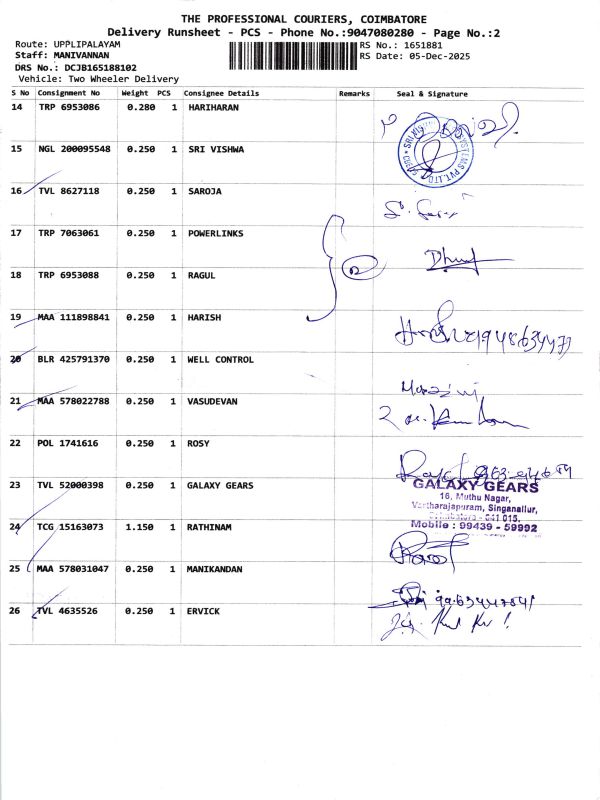 THE PROFESSIONAL COURIERS, COIMBATORE
Delivery Runsheet - PCS - Phone No.:9047080280 - Page No.:2
Route: UPPLIPALAYAM RS No.: 1651881
Staff: MANIVANNAN RS Date: 05-Dec-2025
DRS No.: DCJB165188102
Vehicle: Two Wheeler Delivery
S No Consignment No Weight PCS Consignee Details Remarks Seal & Signature
14 TRP 6953086 0.280 1 HARIHARAN
15 NGL 200095548 0.250 1 SRI VISHWA
16 TVL 8627118 0.250 1 SAROJA
17 TRP 7063061 0.250 1 POWERLINKS
18 TRP 6953088 0.250 1 RAGUL
19 MAA 111898841 0.250 1 HARISH
20 BLR 425791370 0.250 1 WELL CONTROL
21 MAA 578022788 0.250 1 VASUDEVAN
22 POL 1741616 0.250 1 ROSY
23 TVL 52000398 0.250 1 GALAXY GEARS
GALAXY GEARS
16, Muthu Nagar,
Vartharajapuram, Singanallur,
Coimbatore - 641 015.
Mobile : 99439 - 59992
24 TCG 15163073 1.150 1 RATHINAM
25 MAA 578031047 0.250 1 MANIKANDAN
26 TVL 4635526 0.250 1 ERVICK